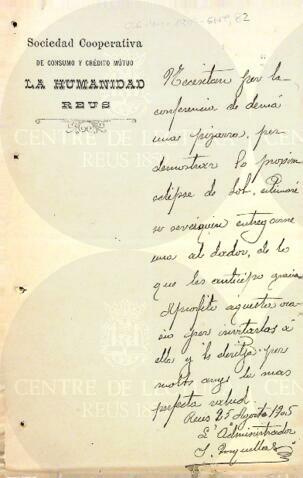 Sociedad Cooperativa
DE CONSUMO Y CRÉDITO MÚTUO
LA HUMANIDAD
REUS
Necesitan per la
conferencia de demá
una pizarra, per
demostrar lo proxim
eclipse de Sol, estimaré
se serveiquin entregarne
una al dador, de lo
que les anticipo gracias
Aprofito aquesta oca
sió per invitarlos á
ella y desitja per
molts anys la mas
perfecta salud.
Reus 25 Agosto 1905
L' Administrador
CENTRE DE LECTURA
REUS